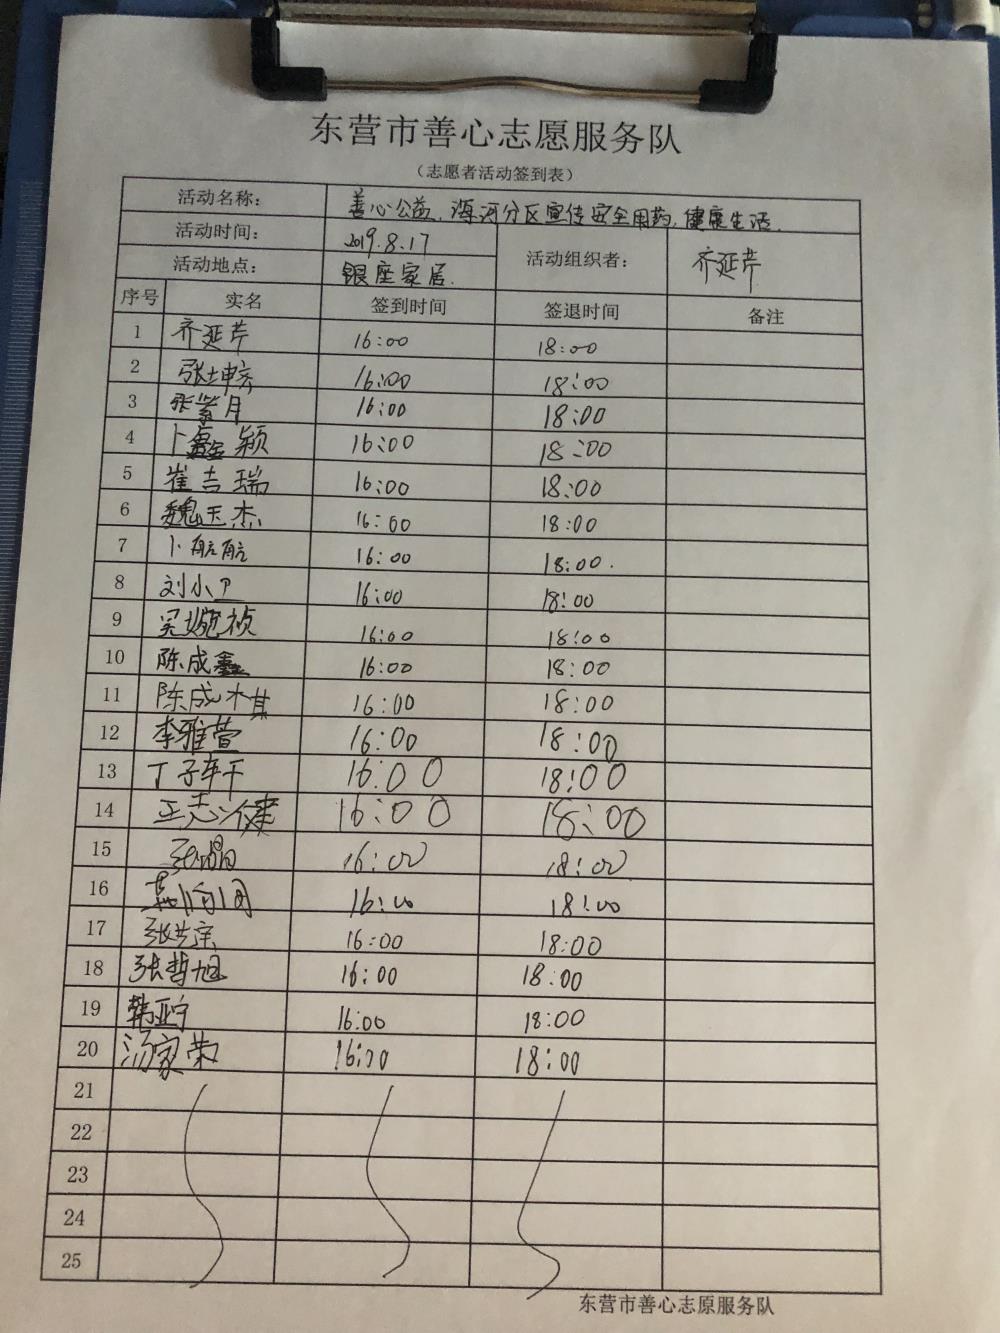 东营市善心志愿服务队
（志愿者活动签到表）
活动名称： 善心公益，海河分区宣传安全用药，健康生活.
活动时间： 2019.8.17
活动组织者： 齐延芹
活动地点： 银座家居.
序号 实名 签到时间 签退时间 备注
1 齐延芹 16:00 18:00
2 张坤 16:00 18:00
3 张紫月 16:00 18:00
4 卜鑫颖 16:00 18:00
5 崔吉瑞 16:00 18:00
6 魏玉杰 16:00 18:00
7 卜航航 16:00 18:00.
8 刘小卫 16:00 18:00
9 吴婉祯 16:00 18:00
10 陈成鑫 16:00 18:00
11 陈成林其 16:00 18:00
12 李雅萱 16:00 18:00
13 丁子轩 16:00 18:00
14 志健 16:00 18:00
15 16:00 18:00
16 16:00 18:00
17 张 16:00 18:00
18 张哲旭 16:00 18:00
19 韩亚宁 16:00 18:00
20 汤家荣 16:00 18:00
21
22
23
24
25
东营市善心志原服务队